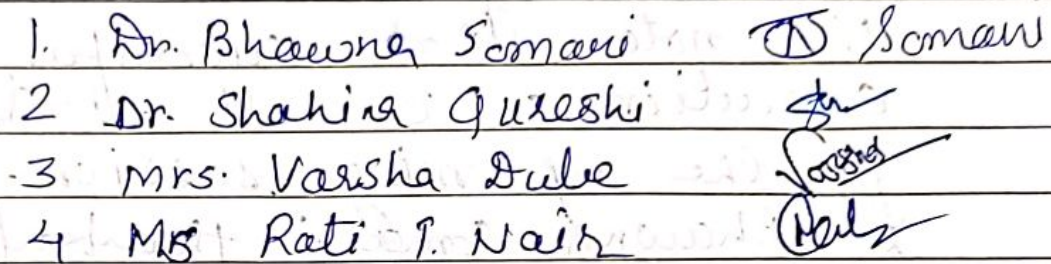 1. Dr. Bhawna Somani Somani
2 Dr. Shahina Qureshi
3 Mrs. Varsha Dube Varsha
4 Mrs Rati T. Nair